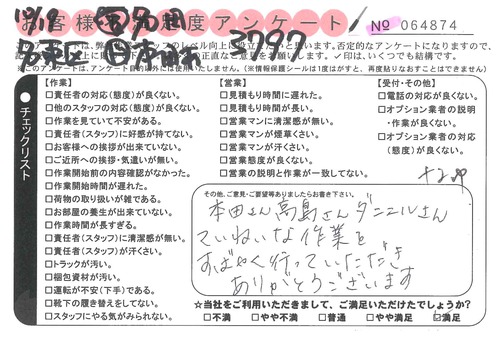 お客様満足度アンケート
№ 064874
3797
※このアンケートは、アンケート目的以外には使用いたしません。(※情報保護シールは1度はがすと、再度貼りなおすことはできません)
チェックリスト
【作業】
□責任者の対応(態度)が良くない。
□他のスタッフの対応(態度)が良くない。
□作業を見ていて不安がある。
□責任者(スタッフ)に好感が持てない。
□お客様への挨拶が出来ていない。
□ご近所への挨拶・気遣いが無い。
□作業開始前の内容確認がなかった。
□作業開始時間が遅れた。
□荷物の取り扱いが雑である。
□お部屋の養生が出来ていない。
□作業時間が長すぎる。
□責任者(スタッフ)に清潔感が無い。
□責任者(スタッフ)が汗くさい。
□トラックが汚い。
□梱包資材が汚い。
□運転が不安(下手)である。
□靴下の履き替えをしてない。
□スタッフにやる気がみられない。
【営業】
□見積もり時間に遅れた。
□見積もり時間が長い。
□営業マンに清潔感が無い。
□営業マンが煙草くさい。
□営業マンが汗くさい。
□営業態度が良くない。
□営業の説明と作業が一致してない。
【受付・その他】
□電話の対応が良くない。
□オプション業者の説明
・作業が良くない。
□オプション業者の対応
(態度)が良くない。
その他、ご意見・ご要望等ありましたらお書き下さい。
本田さん高島さんダニエルさん
ていねいな作業を
すばやく行っていただき
ありがとうございます
☆当社をご利用いただきまして、ご満足いただけたでしょうか?
□不満 □やや不満 □普通 □やや満足 □満足